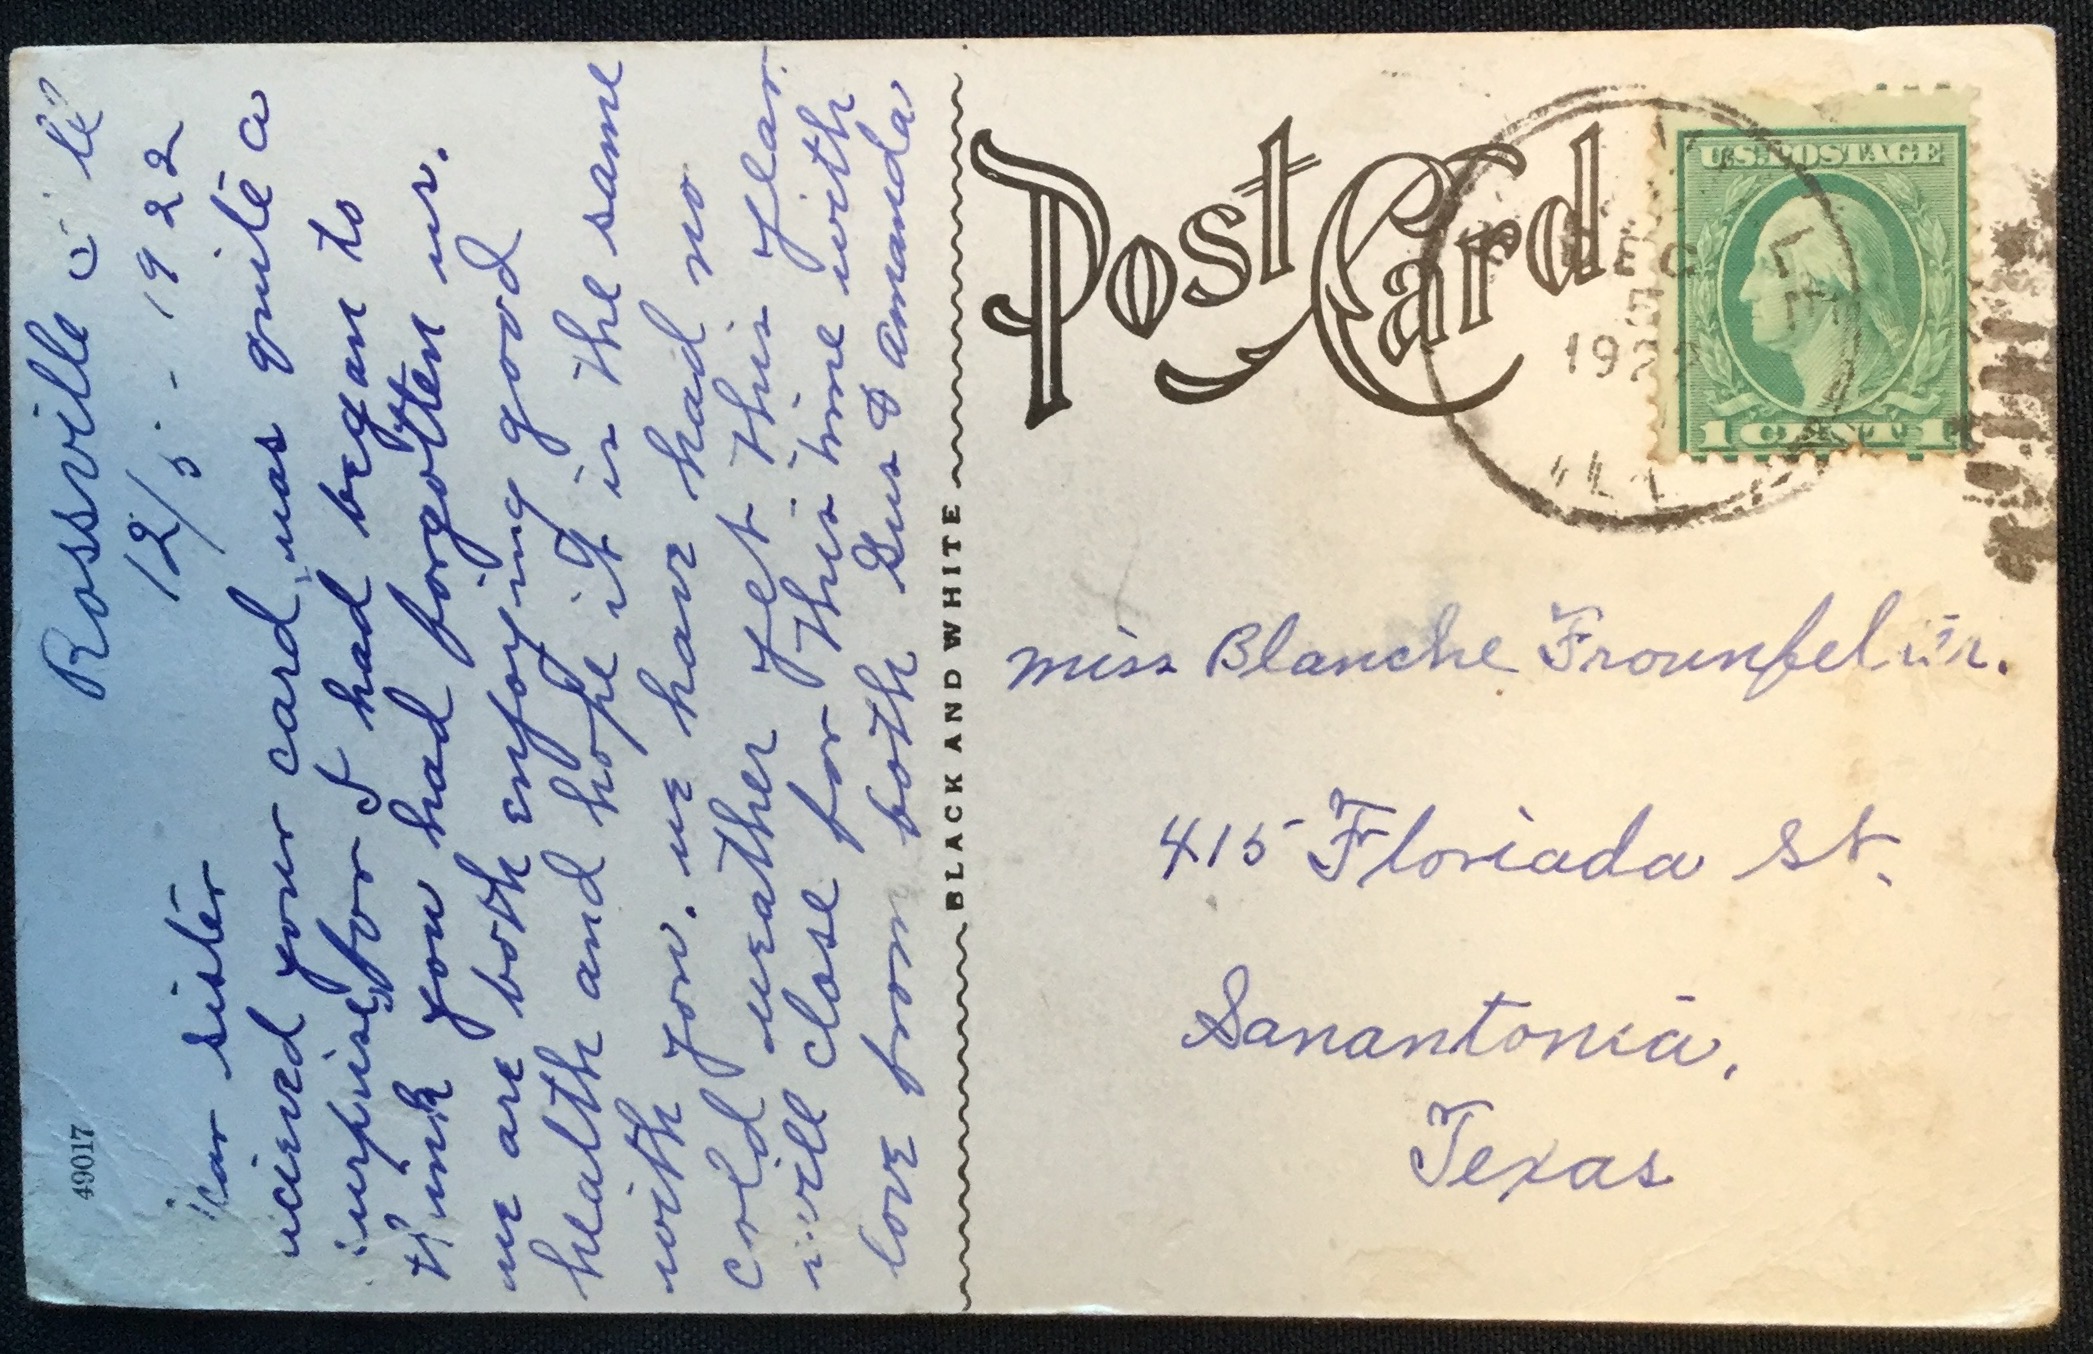 49017
Rossville
12/5 - 1922
sister
your card was quite a
for I had began to
think you had forgotten us.
we are both enjoying good
health and hope it is the same
with you. we have had no
cold weather yet this year.
will close for this time with
love from both Gus & amanda
BLACK AND WHITE
Post Card
U.S. POSTAGE
1 CENT 1
DEC
192
miss Blanche
415 Floriada st.
Sanantonia,
Texas